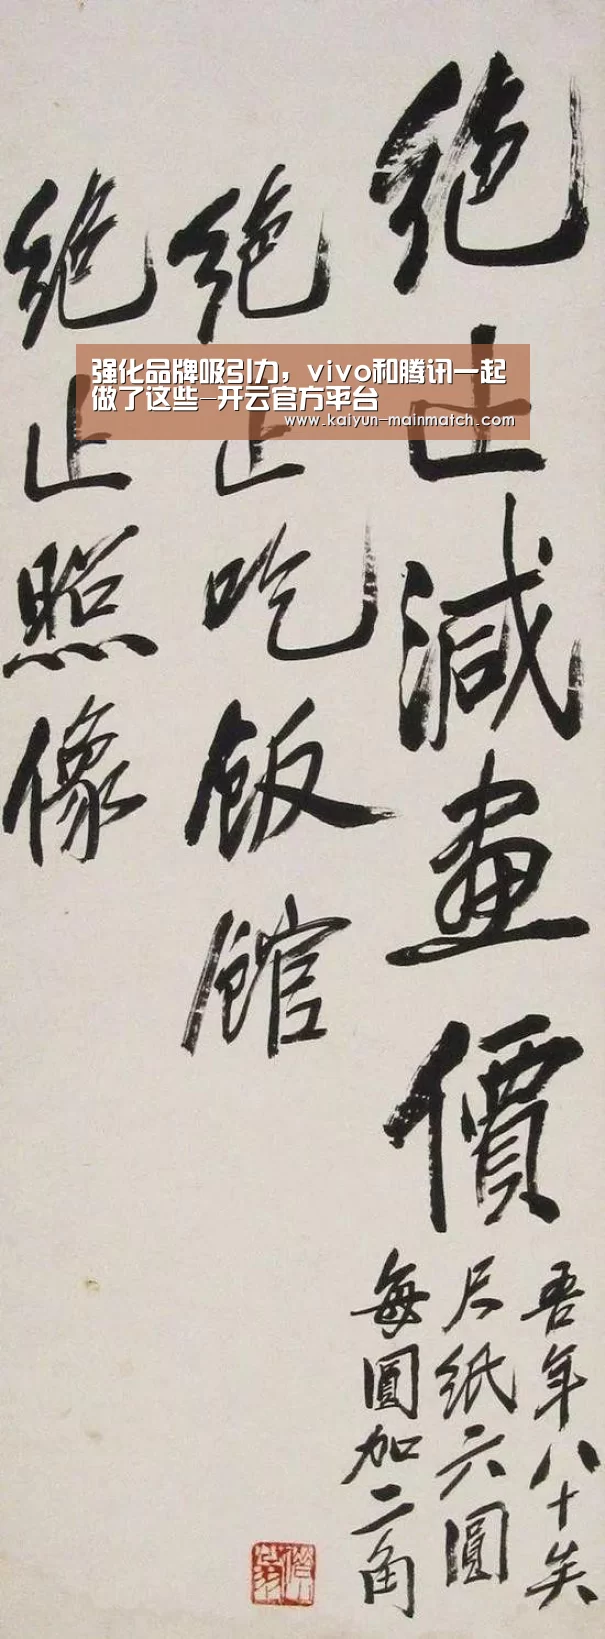 絶止減畫價
吾年八十矣
尺紙六圓
每圓加二角
絶止吃飯館
絶止照像
强化品牌吸引力，vivo和腾讯一起
做了这些–开云官方平台
www.kaiyun-mainmatch.com